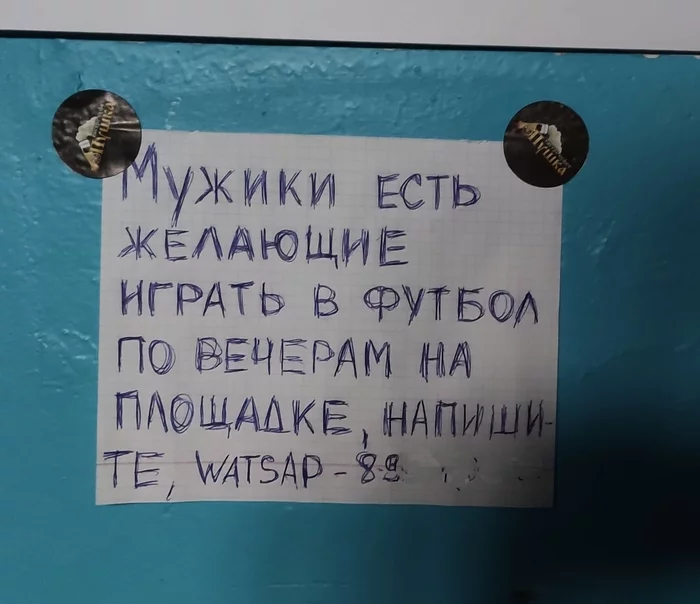 Пушка
Пушка
МУЖИКИ ЕСТЬ
ЖЕЛАЮЩИЕ
ИГРАТЬ В ФУТБОЛ
ПО ВЕЧЕРАМ НА
ПЛОЩАДКЕ, НАПИШИ-
ТЕ, WATSAP - 89